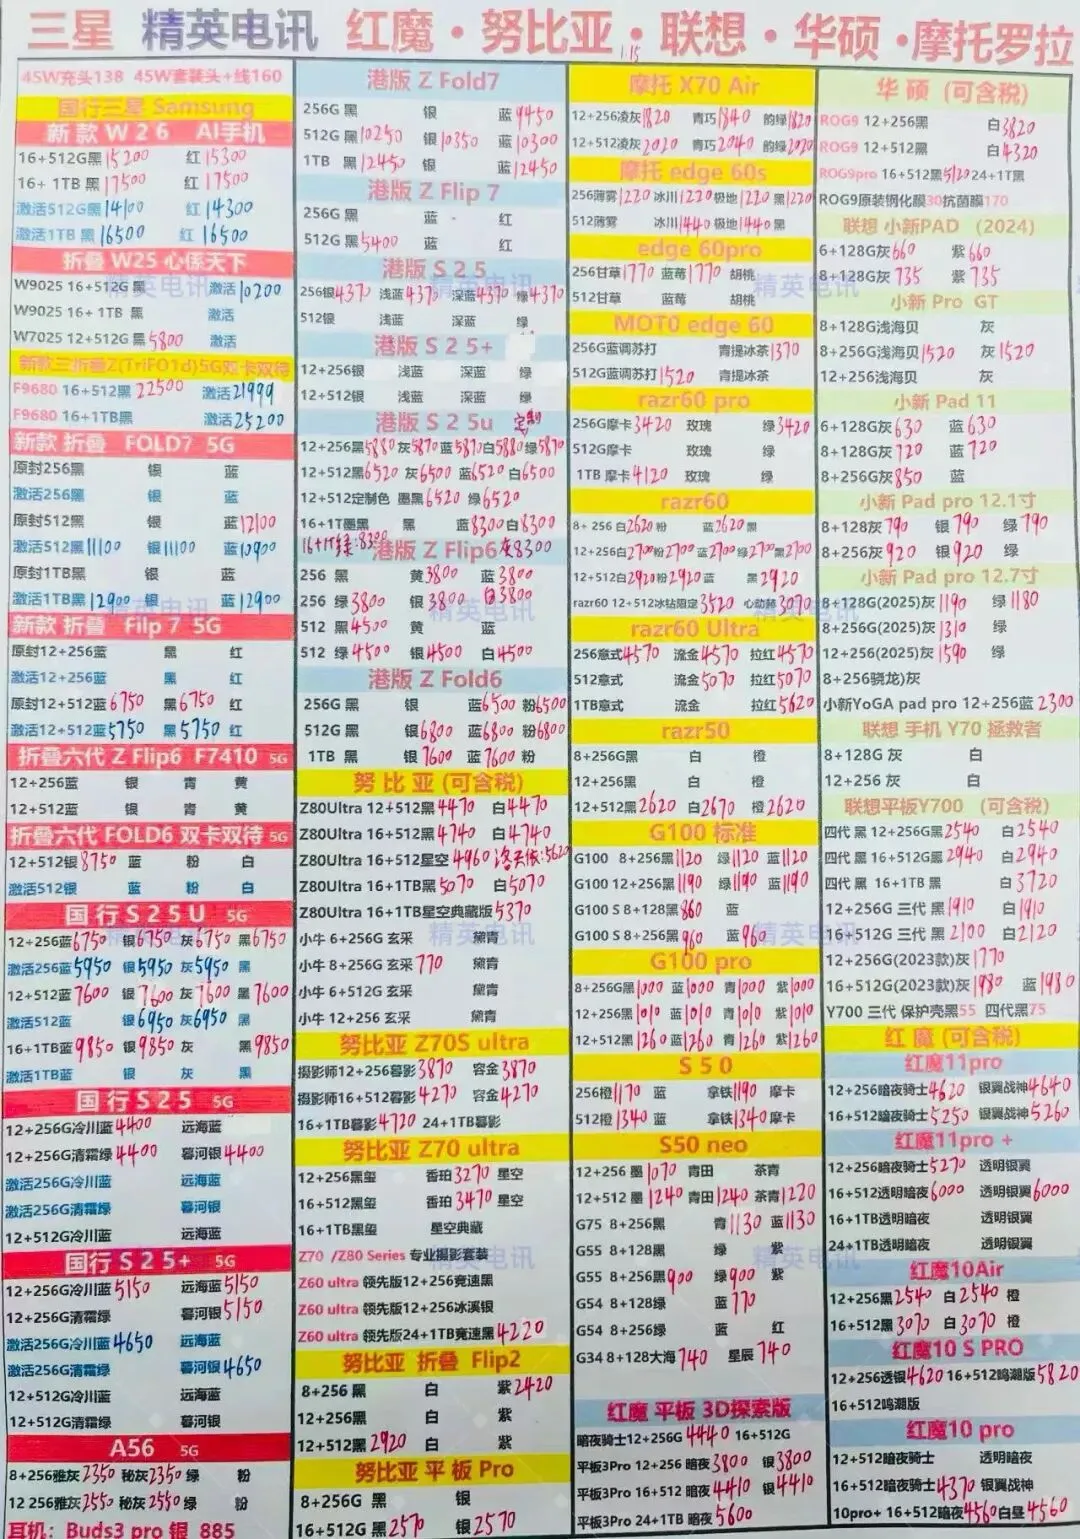 三星 精英电讯 红魔·努比亚·联想·华硕·摩托罗拉
1.15
45W充头138 45W套装头+线160
国行三星 Samsung
新款W26 AI手机
16+512G黑15200 红15300
16+ 1TB 黑17500 红17500
激活512G黑14100 红14300
激活1TB 黑16500 红16500
折叠 W25 心系天下
W9025 16+512G 黑 激活10200
W9025 16+ 1TB 黑 激活
W7025 12+512G 黑5800 激活
新款三折叠Z(TriFO1d)5G双卡双待
F9680 16+512黑22500 激活21999
F9680 16+1TB黑 激活25200
新款 折叠 FOLD7 5G
原封256黑 银 蓝
激活256黑 银 蓝
原封512黑 银 蓝12100
激活512黑11100 银11100 蓝10900
原封1TB黑 银 蓝
激活1TB黑12900 银 蓝12900
新款 折叠 Filp 7 5G
原封12+256蓝 黑 红
激活12+256蓝 黑 红
原封12+512蓝6750 黑6750 红
激活12+512蓝5750 黑5750 红
折叠六代 Z Flip6 F7410 5G
12+256蓝 银 青 黄
12+512蓝 银 青 黄
折叠六代 FOLD6 双卡双待 5G
12+512银8750 蓝 粉 白
激活512银 蓝 粉 白
国行S25U 5G
12+256蓝6750 银6750 灰6750 黑6750
激活256蓝5950 银5950 灰5950 黑
12+512蓝7600 银7600 灰7600 黑7600
激活512蓝 银6950 灰6950 黑
16+1TB蓝9850 银9850 灰 黑9850
激活1TB蓝 银 灰 黑
国行S25 5G
12+256G冷川蓝4400 远海蓝
12+256G清霜绿4400 暮河银4400
激活256G冷川蓝 远海蓝
激活256G清霜绿 暮河银
12+512G冷川蓝 远海蓝
国行S25+ 5G
12+256G冷川蓝5150 远海蓝5150
12+256G清霜绿 暮河银5150
激活256G冷川蓝4650 远海蓝
激活256G清霜绿 暮河银4650
12+512G冷川蓝 远海蓝
12+512G清霜绿 暮河银
A56 5G
8+256雅灰2350 秘灰2350 绿 粉
12 256雅灰2550 秘灰2550 绿 粉
耳机: Buds3 pro 银 885
港版 Z Fold7
256G 黑 银 蓝9450
512G 黑10250 银10350 蓝10300
1TB 黑12450 银 蓝12450
港版 Z Flip 7
256G 黑 蓝 红
512G 黑5400 蓝 红
港版 S25
256银4370 浅蓝4370 深蓝4370 绿4370
512银 浅蓝 深蓝 绿
港版 S25+
12+256银 浅蓝 深蓝 绿
12+512银 浅蓝 深蓝 绿
港版 S25u 定制
12+256黑5880灰5870蓝5870白5880绿5870
12+512黑6520 灰6500 蓝6520 白6500
12+512定制色 墨黑6520 绿6520
16+1T墨黑 黑 蓝8300白8300
16+1T绿:8300 灰8300
港版 Z Flip6
256 黑 黄3800 蓝3800
256 绿3800 银3800 白3800
512 黑4500 黄 蓝
512 绿4500 银4500 白4500
港版 Z Fold6
256G 黑 银 蓝6500 粉6500
512G 黑 银6800 蓝6800 粉6800
1TB 黑 银7600 蓝7600 粉
努比亚(可含税)
Z80Ultra 12+512黑4470 白4470
Z80Ultra 16+512黑4740 白4740
Z80Ultra 16+512星空4960 洛天依:5620
Z80Ultra 16+1TB黑5070 白5070
Z80Ultra 16+1TB星空典藏版5370
小牛 6+256G 玄采 黛青
小牛 8+256G 玄采770 黛青
小牛 6+512G 玄采 黛青
小牛 12+256 玄采 黛青
努比亚 Z70S ultra
摄影师12+256暮影3870 容金3870
摄影师16+512暮影4270 容金4270
16+1TB暮影4720 24+1TB暮影
努比亚 Z70 ultra
12+256黑玺 香珀3270 星空
16+512黑玺 香珀3470 星空
16+1TB黑玺 星空典藏
Z70 /Z80 Series 专业摄影套装
Z60 ultra 领先版12+256竞速黑
Z60 ultra 领先版12+256冰溪银
Z60 ultra 领先版24+1TB竞速黑4220
努比亚 折叠 Flip2
8+256 黑 白 紫2420
12+256黑 白 紫
12+512黑2920 白 紫
努比亚平板Pro
8+256G 黑 银
16+512G 黑2570 银2570
摩托 X70 Air
12+256凌灰1820 青巧1840 韵绿1820
12+512凌灰2020 青巧2040 韵绿2020
摩托 edge 60s
256薄雾1220 冰川1220极地1220黑1220
512薄雾 冰川1440极地1440黑
edge 60pro
256甘草1770 蓝莓1770 胡桃
512甘草 蓝莓 胡桃
MOT0 edge 60
256G蓝调苏打 青提冰茶1370
512G蓝调苏打1520 青提冰茶
razr60 pro
256G摩卡3420 玫瑰 绿3420
512G摩卡 玫瑰 绿
1TB 摩卡4120 玫瑰 绿
razr60
8+ 256 白2620粉 蓝2620黑
12+256白2700粉2700蓝2700绿2700黑2700
12+512白2920粉2920蓝 黑2920
razr60 12+512冰钻限定3520 心动赫3070
razr60 Ultra
256意式4570 流金4570 拉红4570
512意式 流金5070 拉红5070
1TB意式 流金 拉红5620
razr50
8+256G黑 白 橙
12+256黑 白 橙
12+512黑2620 白2670 橙2620
G100 标准
G100 8+256黑1120 绿1120 蓝1120
G100 12+256黑1190 绿1190 蓝1190
G100 S 8+128黑860 蓝
G100 S 8+256黑960 蓝960
G100 pro
8+256G黑1000 蓝1000 青1000 紫1000
12+256黑1010 蓝1010 青1010 紫1010
12+512黑1260 蓝1260 青1260 紫1260
S50
256橙1170 蓝 拿铁1190 摩卡
512橙1340 蓝 拿铁1340 摩卡
S50 neo
12+256 墨1070 青田 茶青
12+512 墨1240 青田1240 茶青1220
G75 8+256黑 青1130 蓝1130
G55 8+128黑 绿 紫
G55 8+256黑900 绿900 紫
G54 8+128绿 蓝770
G54 8+256绿 蓝 红
G34 8+128大海740 星辰740
红魔 平板 3D探索版
暗夜骑士12+256G 4440 16+512G
平板3Pro 12+256 暗夜3800 银3800
平板3Pro 16+512 暗夜4410 银4410
平板3Pro 24+1TB 暗夜5600
华硕 (可含税)
ROG9 12+256黑 白3820
ROG9 12+512黑 白4320
ROG9pro 16+512黑5120 24+1T黑
ROG9原装钢化膜30抗菌膜170
联想 小新PAD (2024)
6+128G灰660 紫660
8+128G灰735 紫735
小新 Pro GT
8+128G浅海贝 灰
8+256G浅海贝1520 灰1520
12+256浅海贝 灰
小新 Pad 11
6+128G灰630 蓝630
8+128G灰720 蓝720
8+256G灰850 蓝
小新 Pad pro 12.1寸
8+128灰790 银790 绿790
8+256灰920 银920 绿
小新 Pad pro 12.7寸
8+128G(2025)灰1190 绿1180
8+256G(2025)灰1310 绿
12+256(2025)灰1590 绿
8+256骁龙)灰
小新YoGA pad pro 12+256蓝2300
联想 手机 Y70 拯救者
8+128G 灰 白
12+256 灰 白
联想平板Y700 (可含税)
四代 黑 12+256G黑2540 白2540
四代 黑 16+512G黑2940 白2940
四代 黑 16+1TB 黑 白3720
12+256G 三代 黑1910 白1910
16+512G 三代 黑2100 白2120
12+256G(2023款)灰1770
16+512G(2023款)灰1980 蓝1980
Y700 三代 保护壳黑55 四代黑75
红魔(可含税)
红魔11pro
12+256暗夜骑士4620 银翼战神4640
16+512暗夜骑士5250 银翼战神5260
红魔11pro +
12+256暗夜骑士5270 透明银翼
16+512透明暗夜6000 透明银翼6000
16+1TB透明暗夜 透明银翼
24+1TB透明暗夜 透明银翼
红魔10Air
12+256黑2540 白2540 橙
16+512黑3070 白3070 橙
红魔10 S PRO
12+256透银4620 16+512鸣潮版5820
16+512鸣潮版
红魔10 pro
12+512暗夜骑士 透明暗夜
16+512暗夜骑士4370 银翼战神
10pro+ 16+512暗夜4560白昼4560